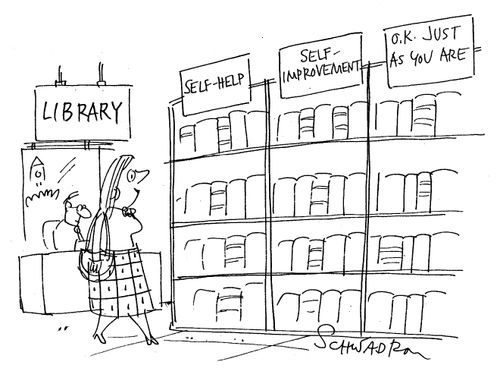 LIBRARY
SELF-HELP
SELF-
IMPROVEMENT
O.K. JUST
AS YOU ARE
SCHWADRON